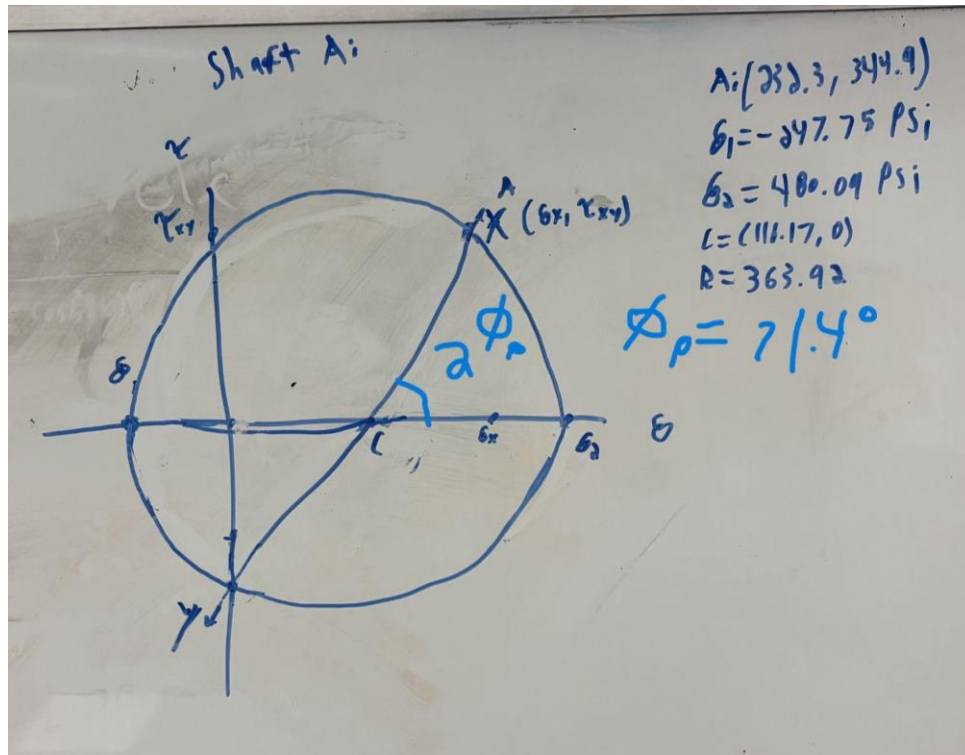 Shaft A:
A:(232.3, 344.9)
б₁=-247.75 PSi
б₂= 480.09 PSi
C=(116.17,0)
R= 363.92
ϕₚ= 71.4°
τ
τxy
A
X (бx, τxy)
2ϕₚ
б₁
C
бx
б₂
б
y